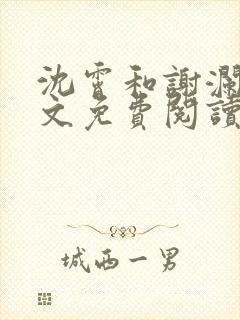 沈霄和謝瀾
文免費閱讀
城西一男